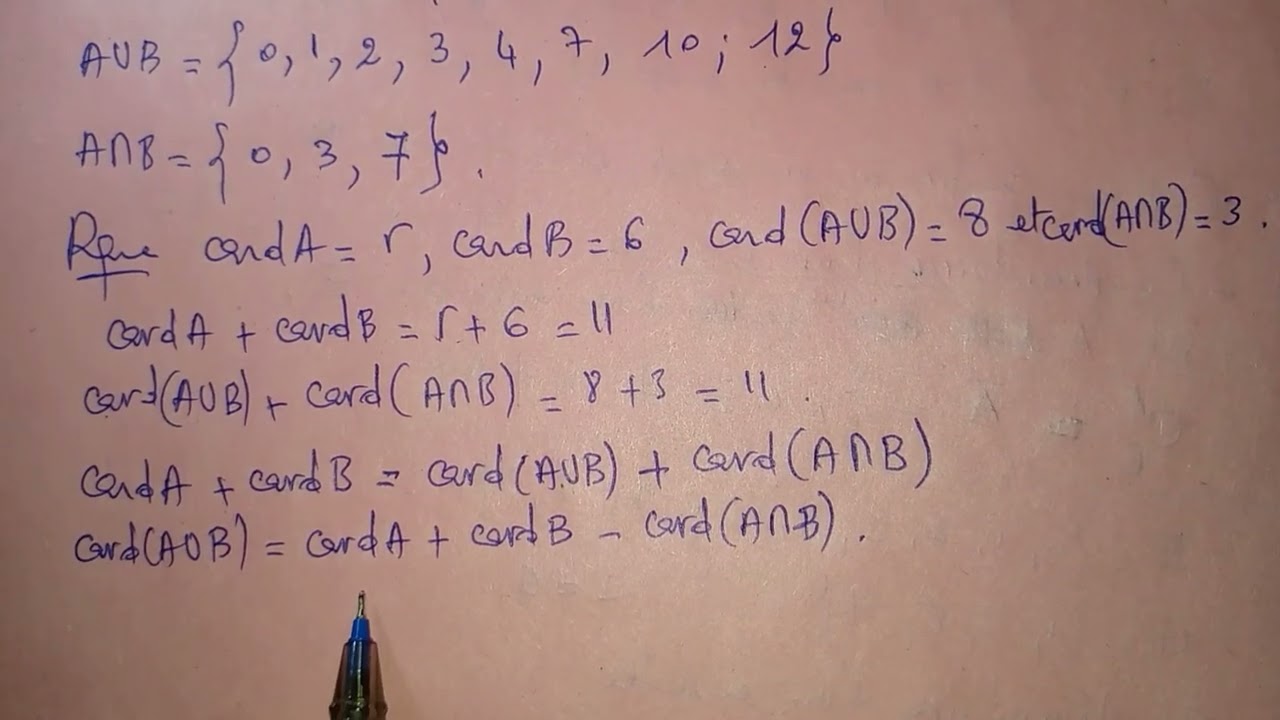 A∪B = {0, 1, 2, 3, 4, 7, 10; 12}
A∩B = {0, 3, 7}.
Rque card A = 5, card B = 6, card(A∪B) = 8 et card(A∩B) = 3.
card A + card B = 5 + 6 = 11
card(A∪B) + card(A∩B) = 8 + 3 = 11.
card A + card B = card(A∪B) + card(A∩B)
card(A∪B) = card A + card B - card(A∩B).